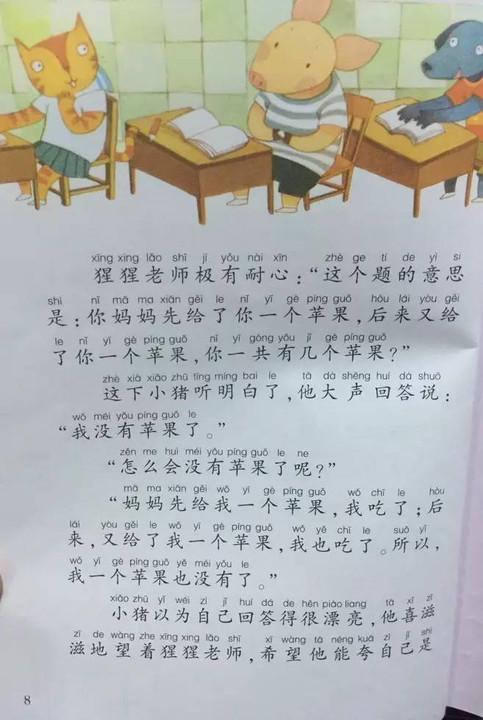 xīng xing lǎo shī jí yǒu nài xīn zhè ge tí de yì si
猩猩老师极有耐心：“这个题的意思
shì nǐ mā ma xiān gěi le nǐ yí gè píng guǒ hòu lái yòu gěi
是：你妈妈先给了你一个苹果，后来又给
le nǐ yí gè píng guǒ nǐ yí gòng yǒu jǐ gè píng guǒ
了你一个苹果，你一共有几个苹果？”
zhè xià xiǎo zhū tīng míng bai le tā dà shēng huí dá shuō
这下小猪听明白了，他大声回答说：
wǒ méi yǒu píng guǒ le
“我没有苹果了。”
zěn me huì méi yǒu píng guǒ le ne
“怎么会没有苹果了呢？”
mā ma xiān gěi wǒ yí gè píng guǒ wǒ chī le hòu
“妈妈先给我一个苹果，我吃了；后
lái yòu gěi le wǒ yí gè píng guǒ wǒ yě chī le suǒ yǐ
来，又给了我一个苹果，我也吃了。所以，
wǒ yí gè píng guǒ yě méi yǒu le
我一个苹果也没有了。”
xiǎo zhū yǐ wéi zì jǐ huí dá de hěn piào liang tā xǐ zī
小猪以为自己回答得很漂亮，他喜滋
zī de wàng zhe xīng xing lǎo shī xī wàng tā néng kuā zì jǐ shì
滋地望着猩猩老师，希望他能夸自己是
8